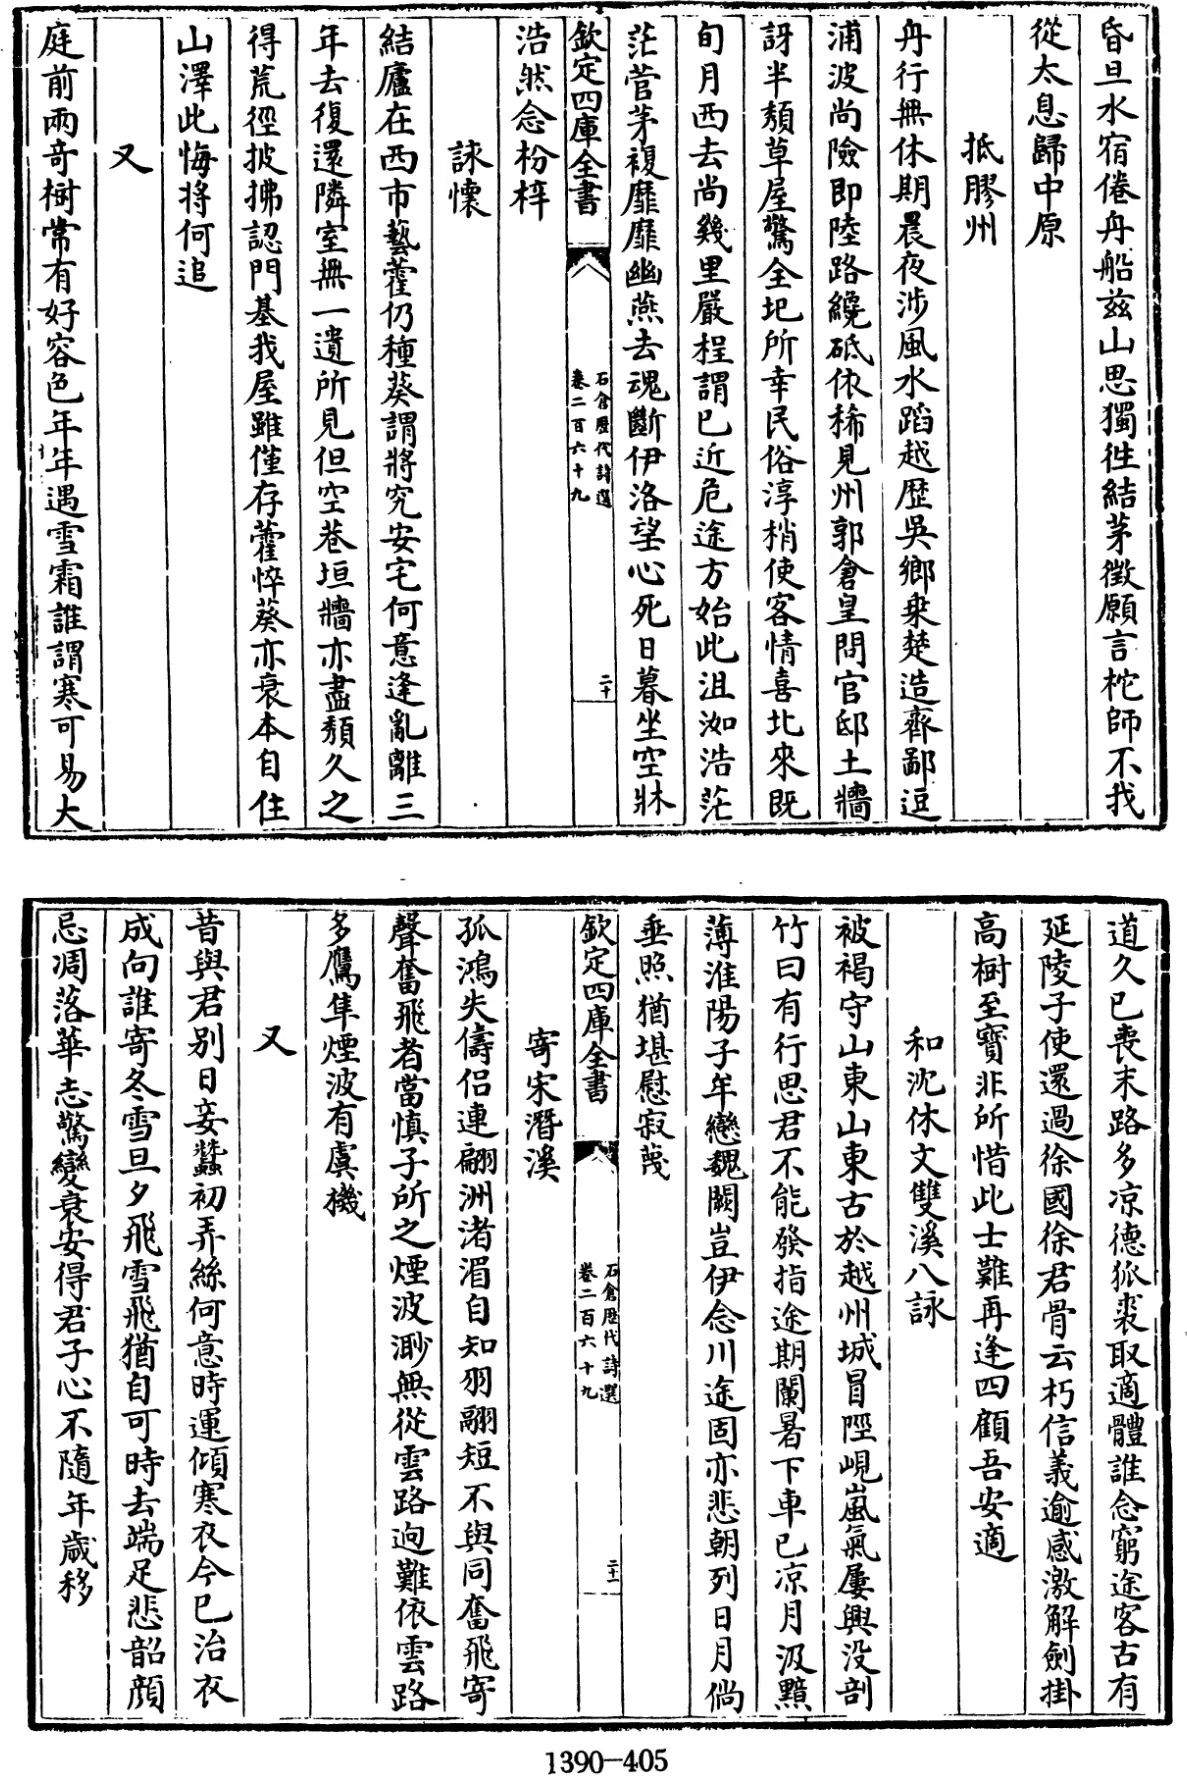 昏旦水宿倦舟船兹山思獨徃結茅徴願言柁師不找
從太息歸中原
抵膠州
舟行無休期晨夜涉風水蹈越歴吳鄉乗楚造齊鄙逗
浦波尚險即陸路繞砥依稀見州郭倉皇問官邸土牆
訝半頽草屋驚全圮所幸民俗淳梢使客情喜北來既
旬月西去尚幾里嚴程謂已近危途方始此沮洳浩茫
茫菅茅複靡靡幽燕去魂斷伊洛望心死日暮坐空牀
欽定四庫全書
石倉歴代詩選
卷二百六十九
二十
浩然念枌梓
詠懷
結廬在西市藝藿仍種葵謂將究安宅何意逢亂離三
年去復還隣室無一遺所見但空巷垣牆亦盡頽久之
得荒徑披拂認門基我屋雖僅存藿悴葵亦衰本自住
山澤此悔將何追
又
庭前兩竒樹常有好容色年年遇雪霜誰謂寒可易大
道久已喪末路多凉德狐裘取適體誰念窮途客古有
延陵子使還過徐國徐君骨云朽信義逾感激解劍掛
高樹至寳非所惜此士難再逢四顧吾安適
和沈休文雙溪八詠
被褐守山東山東古於越州城冒陘峴嵐氣屢興没剖
竹曰有行思君不能發指途期闌暑下車已凉月汲黯
薄淮陽子牟戀魏闕豈伊念川途固亦悲朝列日月倘
垂照猶堪慰寂蔑
欽定四庫全書
石倉歴代詩選
卷二百六十九
二十一
寄宋潛溪
孤鴻失儔侣連翩洲渚湄自知羽翮短不與同奮飛寄
聲奮飛者當慎子所之煙波渺無從雲路迥難依雲路
多鷹隼煙波有虞機
又
昔與君别日妾蠶初弄絲何意時運傾寒衣今已治衣
成向誰寄冬雪旦夕飛雪飛猶自可時去端足悲韶顔
忌凋落華志驚變衰安得君子心不隨年歲移
1390-405